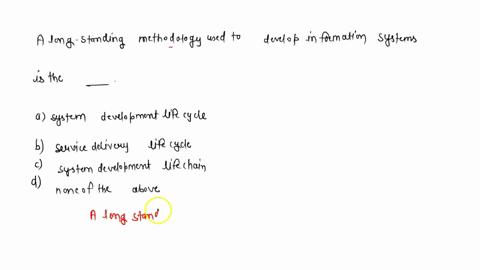 A long-standing methodology used to develop information systems
is the ___.
a) system development life cycle
b) service delivery life cycle
c) system development life chain
d) none of the above
A long stand